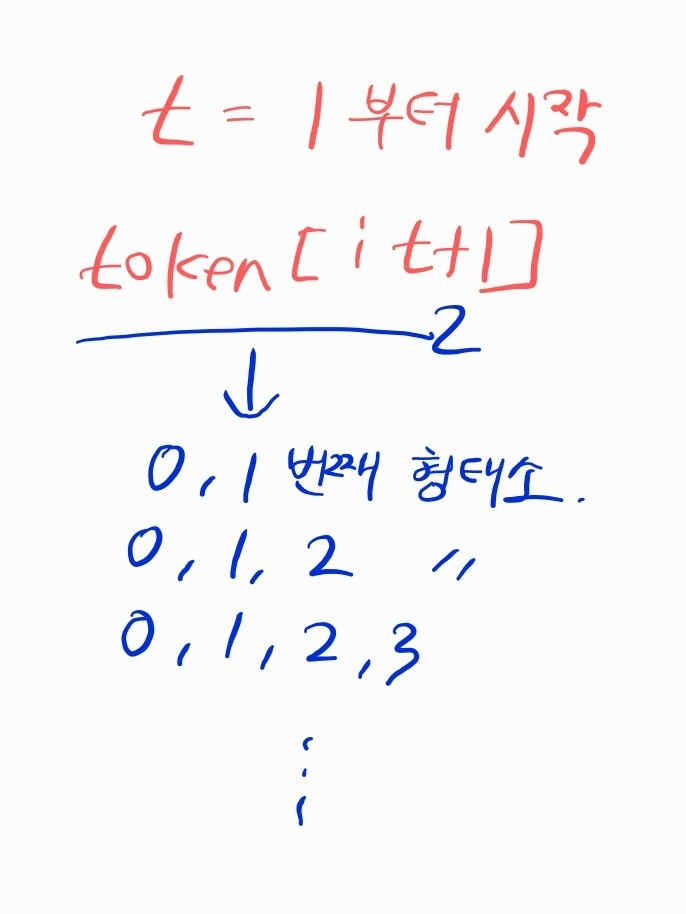 t = 1 부터 시작
token [ i t+1]
2
0, 1 번째 형태소.
0, 1, 2 〃
0, 1, 2, 3